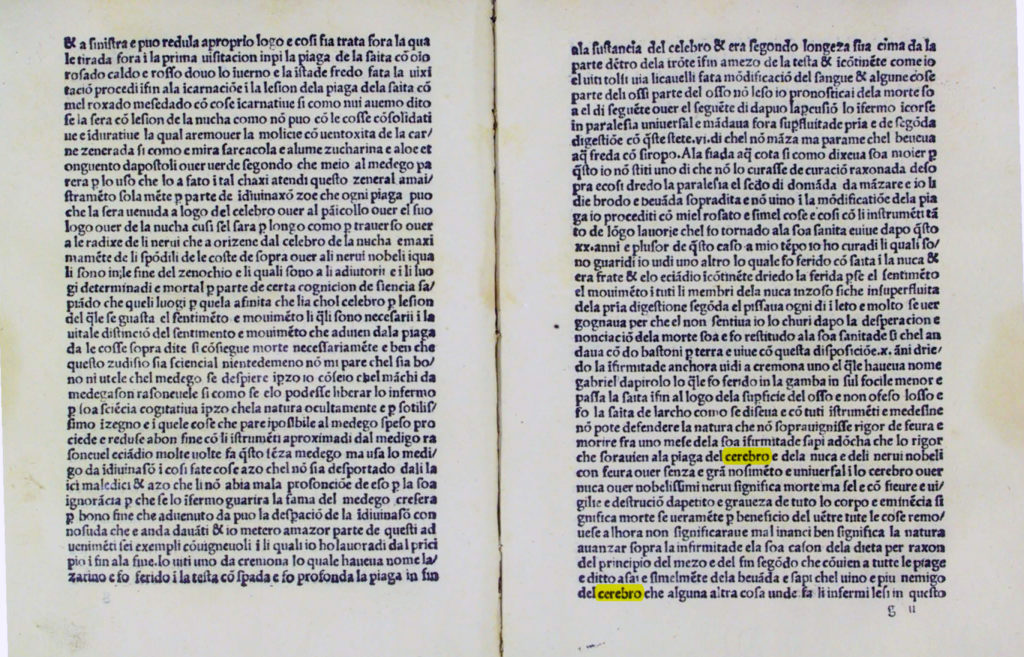 & a sinistra e puo redula aproprio logo e cosi sia trata fora la qua
le tirada fora ĩ la prima uisitacion inpi la piaga de la saita cõ oio
rosado caldo e rosso douo lo iuerno e la istade fredo fata la uixi
tació procedi ifin ala icarnacióe ĩ la lesion dela piaga dela saita cõ
mel roxado mesedado cõ cose icarnatiue si como nui auemo dito
se la sera cõ lesion de la nucha como nõ puo cõ le cosse cõsolidati
ue e iduratiue la qual aremouer la molicie cõ uentoxita de la car/
ne zenerada si como e mira sarcacola e alume zucharina e aloe et
onguento dapostoli ouer uerde segondo che meio al medego pa
rera p lo uso che lo a fato ĩ tal chaxi atendi questo zeneral amai/
stramẽto sola mẽte p parte de idiuinaxõ zoe che ogni piaga puo
che la sera uenuda a logo del celebro ouer al pãicollo ouer el suo
logo ouer de la nucha cusi sel sara p longo como p trauerso ouer
a le radixe de li nerui che a orizene dal celebro de la nucha e maxi
mamẽte de li spõdili de le coste de sopra ouer ali nerui nobeli iqua
li sono in;le fine del zenochio e li quali sono a li adiutorii e i li luo
gi determinadi e mortal p parte de certa cognicion de siencia sa/
piãdo che queli luogi p quela afinita che lia chol celebro p lesion
del q̃le se guasta el sentimẽto e mouimẽto li q̃li sono necesarii ĩ la
uitale distinció del sentimento e mouimẽto che aduien dala piaga
da le cosse sopra dite si cósiegue morte necessariamẽte e ben che
questo zudisio sia sciencial nientedemeno nõ mi pare chel sia bo/
no ni utele chel medego se despiere ipzo io cóseio chel mãchi da
medegason rasoneuele si como se elo podesse liberar lo infermo
p soa sciẽcia cogitatiua ipzo chela natura ocultamente e p sotilis/
simo izegno e i quele cose che pare iposibile al medego speso pro
ciede e reduse abon fine cõ li istrumẽti aproximadi dal medigo ra
soneuel eciãdio molte uolte fa q̃sto sẽza medego ma usa lo medi/
go da idiuinasõ i cosi fate cose azo chel nõ sia desportado dali la
ici maledici & azo che li nõ abia mala prosoncióe de eso p la soa
ignorãcia p che se lo isermo guarira la fama del medego cresera
p bono fine che aduenuto da puo la despació de la idiuinasõ con
nosuda che e anda dauãti & io metero amazor parte de questi ad
uenimẽti sei exempli cõuigneuoli ĩ li quali io ho lauoradi dal prici
pio ĩ fin ala fine.Io uiti uno da cremona lo quale haueua nome la/
zarino e fo ferido ĩ la testa cõ spada e fo profonda la piaga in fin
ala sustancia del celebro & era segondo longeza sua cima da la
parte dẽtro dela frõte ifin amezo de la testa & icõtinẽte come io
el uiti tolsi uia licauelli fata mõdificació del sangue & algune cose
parte deli ossi parte del osso nõ leso io pronosticai dela morte so
a el di seguẽte ouer el seguẽte di dapuo lapcusió lo isermo icorse
in paralesia uniuersal e mãdaua fora supsluitade pria e de segõda
digestióe cõ q̃ste stete.vi.di chel nõ mãza ma parame chel beueua
aq̃ freda cõ siropo.Ala fiada aq̃ cota si como dixeua soa moier p
q̃sto io nõ stiti uno di che nõ lo curasse de curació raxonada deso
pra ecosi dredo la paralesia el secõdo di domãda da mãzare e io li
die brodo e beuãda sopradita e nõ uino ĩ la mõdificatióe dela pia
ga io procediti cõ miel rosato e simel cose e cosi cõ li instrumẽti tã
to de lõgo lauorie chel fo tornado ala soa sanita euiue dapo q̃sto
xx.anni e plusor de q̃sto caso a mio tẽpo io ho curadi li quali so/
no guaridi io uidi uno altro lo quale fo ferido cõ saita ĩ la nuca &
era frate & elo eciãdio icõtinẽte driedo la ferida pse el sentimẽto
el mouimẽto i tuti li membri dela nuca inzoso siche insuperfluita
dela pria digestione segõda el pissaua ogni di i leto e molto se uer
gognaua per che el non sentiua io lo churi dapo la desperacion e
nonciació dela morte soa e fo restitudo ala soa sanitade si chel an
daua cõ do bastoni p terra e uiue cõ questa disposicióe.x. ãni drie/
do la isirmitade anchora uidi a cremona uno el q̃le haueua nome
gabriel dapirolo lo q̃le fo ferido in la gamba in sul focile menor e
passa la saita ifin al logo dela supficie del osso e non ofeso losso e
fo la saita de larcho como se diseua e cõ tuti istrumẽti e medesine
nõ pote defendere la natura che nõ soprauignisse rigor de feura e
morire fra uno mese dela soa isirmitade sapi adõcha che lo rigor
che sorauien ala piaga del cerebro e dela nuca e deli nerui nobeli
con feura ouer senza e grã nosimẽto e uniuersal ĩ lo cerebro ouer
nuca ouer nobelissimi nerui significa morte ma sel e cõ freure e ui/
gilie e destrució dapetito e graueza de tuto lo corpo e eminẽcia si
gnifica morte se ueramẽte p beneficio del uẽtre tute le cose remo/
uese alhora non significaraue mal inanci ben significa la natura
auanzar sopra la infirmitade ela soa cason dela dieta per raxon
del principio del mezo e del fin segõdo che cõuien a tutte le piage
e ditto asai e simelmẽte dela beuãda e sapi chel uino e piu nemigo
del cerebro che alguna altra cosa unde fa li infermi lesi in questo
g ii